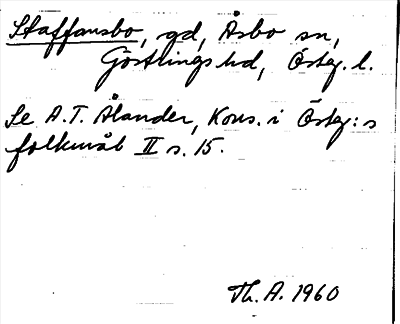 Staffansbo, gd, Åsbo sn,
Göstrings hd, Östg. l.
Se A.T. Ålander, Kons. i Östg:s
folkmål II s. 15.
Th. A. 1960